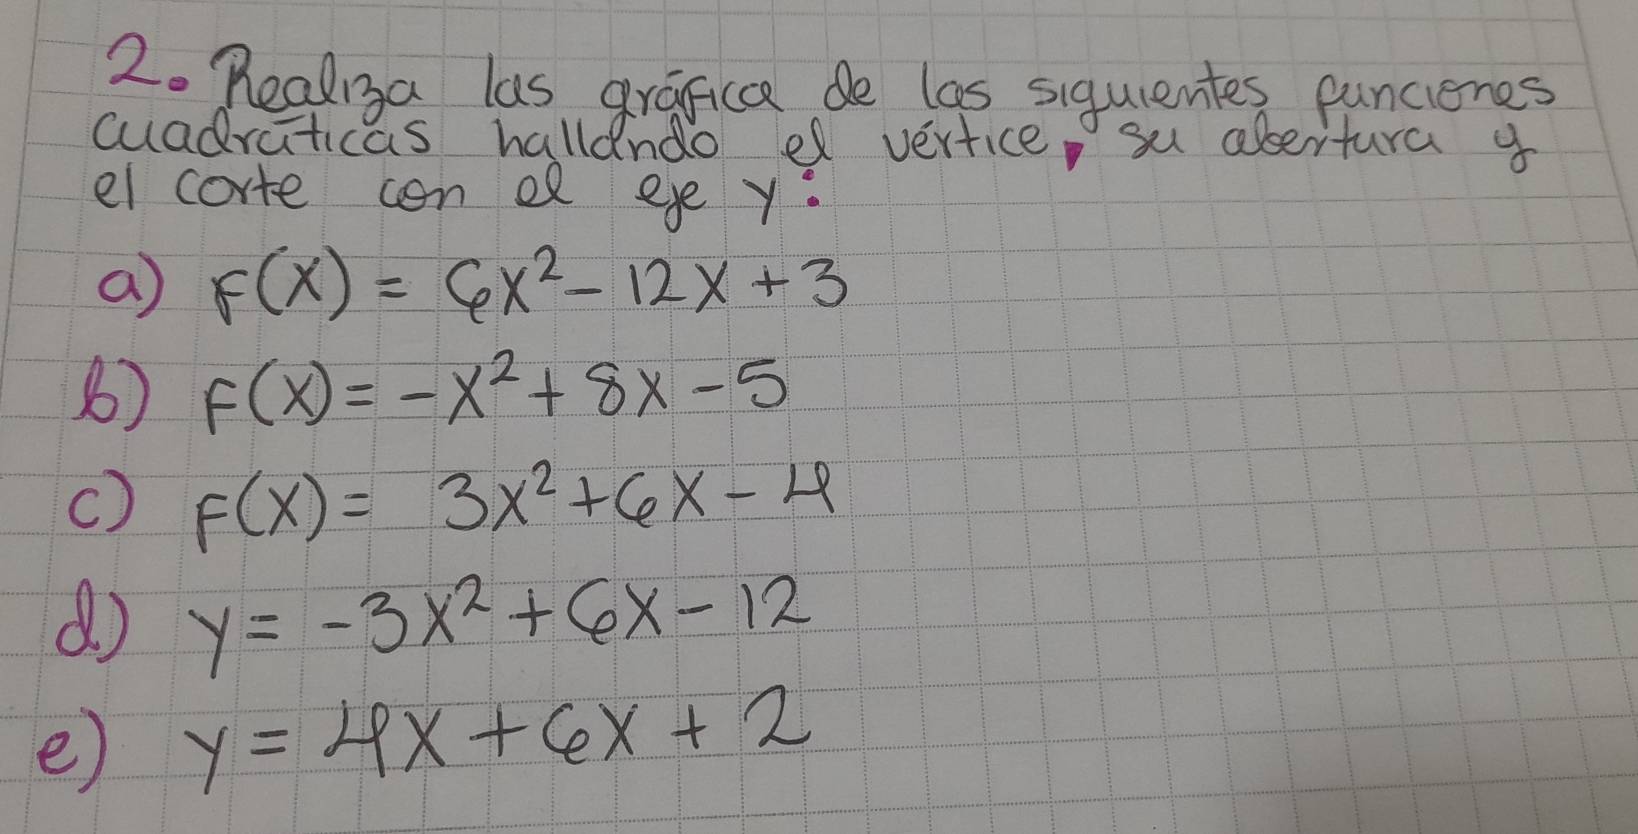 2. Realiza las gráfica de las siguientes funciones
cuadráticas hallando el vértice, su abertura y
el corte con el eje y:
a) F(X) = 6X² - 12X + 3
b) F(X) = -X² + 8X - 5
c) F(X) = 3X² + 6X - 4
d) y = -3X² + 6X - 12
e) y = 4X + 6X + 2